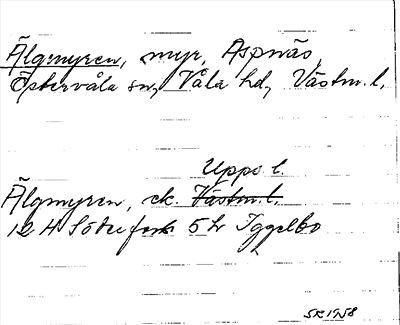 Älgmyren, myr, Aspnäs,
Östervåla sn, Våla hd, Västm. l.
Upps l.
Älgmyren, ek. Västm. l.
12 H Söderfors 5 h Iggelbo